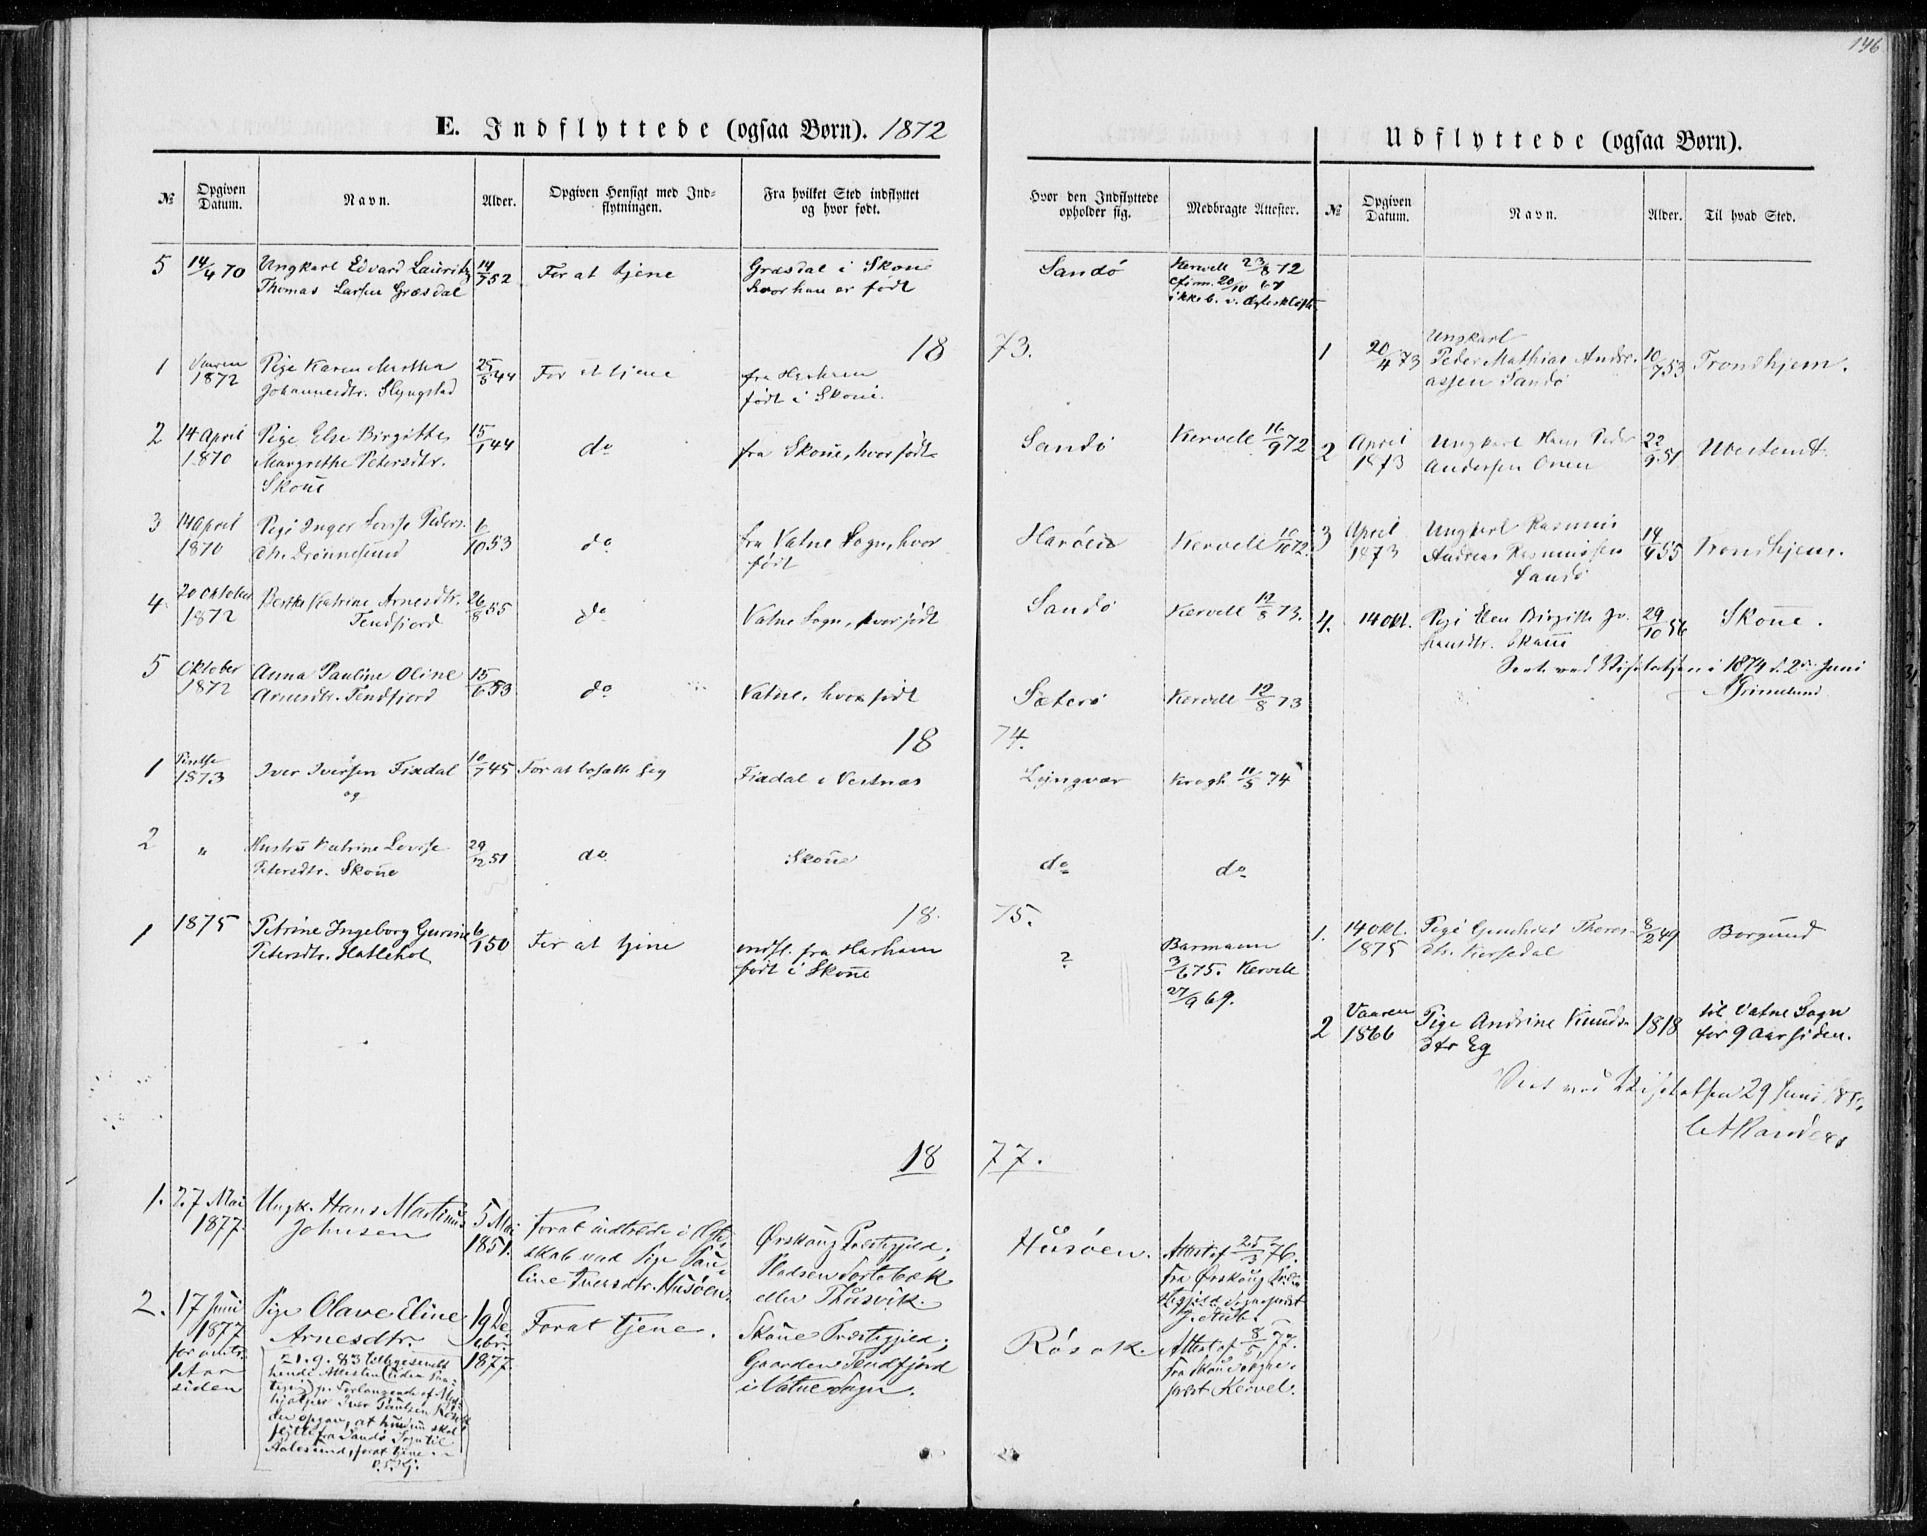 146
E. Indflyttede (ogsaa Børn). 1872
№ Opgiven Datum. Navn. Alder. Opgiven Hensigt med Indflytningen. Fra hvilket Sted indflyttet og hvor født.
Hvor den Indflyttede opholder sig. Medbragte Attester.
5 14/4 70 Ungkarl Edvard Laurits 14/7 52 For at tjene Græsdal i Skoue Sandø Kervell 23/8 72
Thomas Larsen Græsdal hvor han er født
18 73.
1 Vaaren 1872 Pige Karen Martha 25/5 44 For at tjene fra Harham
Johannesdtr. Slyngstad født i Skoue.
2 14 April 1870 Pige Else Birgitte 15/1 44 do fra Skoue, hvor født Sandø Kervell 16/9 72
Margrethe Petersdtr.
Skoue
3 14 April 1870 Pige Inger Lovise Peders- 6/10 53 do fra Vatne Sogn, hvor Harøen Kervell 10/10 72.
dtr. Drønnesund født
4 20 Oktober 1872 Berthe Katrine Arnesdtr. 26/8 55 do Vatne Sogn, hvor født Sandø Kervell 12/8 73.
Tendfjord
5 Oktober 1872 Anna Pauline Oline 15/6 53 do Vatne, hvor født Sæterø Kervell 12/8 73
Arnesdtr. Tendfjord
18 74.
1 Pintse 1873 Iver Iversen Fixdal 10/7 45 For at bosætte sig Fixdal i Vestnæs Lyngvær Krogh 11/5 74
og
2 " Hustru Katrine Lovise 29/12 51 do Skoue do do
Petersdtr. Skoue
18 75.
1 1875 Petrine Ingeborg Gurine 6/1 50 For at tjene indfl. fra Harham ? Barmann
Petersdtr. Hatlehol født i Skoue 3/6 75. Kervell
27/9 69.
18 77.
1. 27 Mai 1877. Ungk. Hans Martinus 5 Mai 1851. Forat indtræde i Ægte- Ørskoug Præstegjeld; Husøen. Attest af 25/3 76.
Johnsen skab med Pige Pau- Pladsen Tortebæk fra Ørskoug Præ-
line Iversdtr. Husøen. eller Thusvik. stegjeld Sognepræst
2. 17 Juni 1877 for omtr. 1 Aar siden Pige Olave Eline 19 Debr. 1877. Forat tjene. Skoue Præstegjeld; Røsok. Attest af 8/5 77.
Arnesdtr. Gaarden Tendfjord fra Skoue Sogne-
i Vatne Sogn. præst Kervel.
21.9.83 tilbagesendt
hende Attesten
p. Forlangende af Med-
hjælper Iver Paulsen Røsok
der opgav, at hun skal
flytte fra Sandø Sogn til
Aalesund, forat tjene
Udflyttede (ogsaa Børn).
№ Opgiven Datum. Navn. Alder. Til hvad Sted.
1 20/4 73 Ungkarl
Peder Mathias Andre- 10/7 53 Trondhjem.
assen Sandø
2 April 1873 Ungkarl Hans Peder 22/9 51 Ubestemt
Andersen Onen
3 April 1873 Ungkarl Rasmus 14/4 55 Trondhjem.
Andreas Rasmussen
Sandø
4. 14 Okt. Pige Elen Birgitte Jo- 29/10 56 Skoue.
hansdtr. Skoue
Seet ved Visitatsen i 1874 d. 2den Juni
Grimelund
1. 14 Okt. 1875 Pige Gunhild Thores- 8/2 49 Borgund
dtr. Korsedal
2 Vaaren 1866 Pige Andrine Knuds- 1818 til Vatne Sogn
dtr Eg for 9 Aar siden.
Seet ved Visitatsen 29 Juni